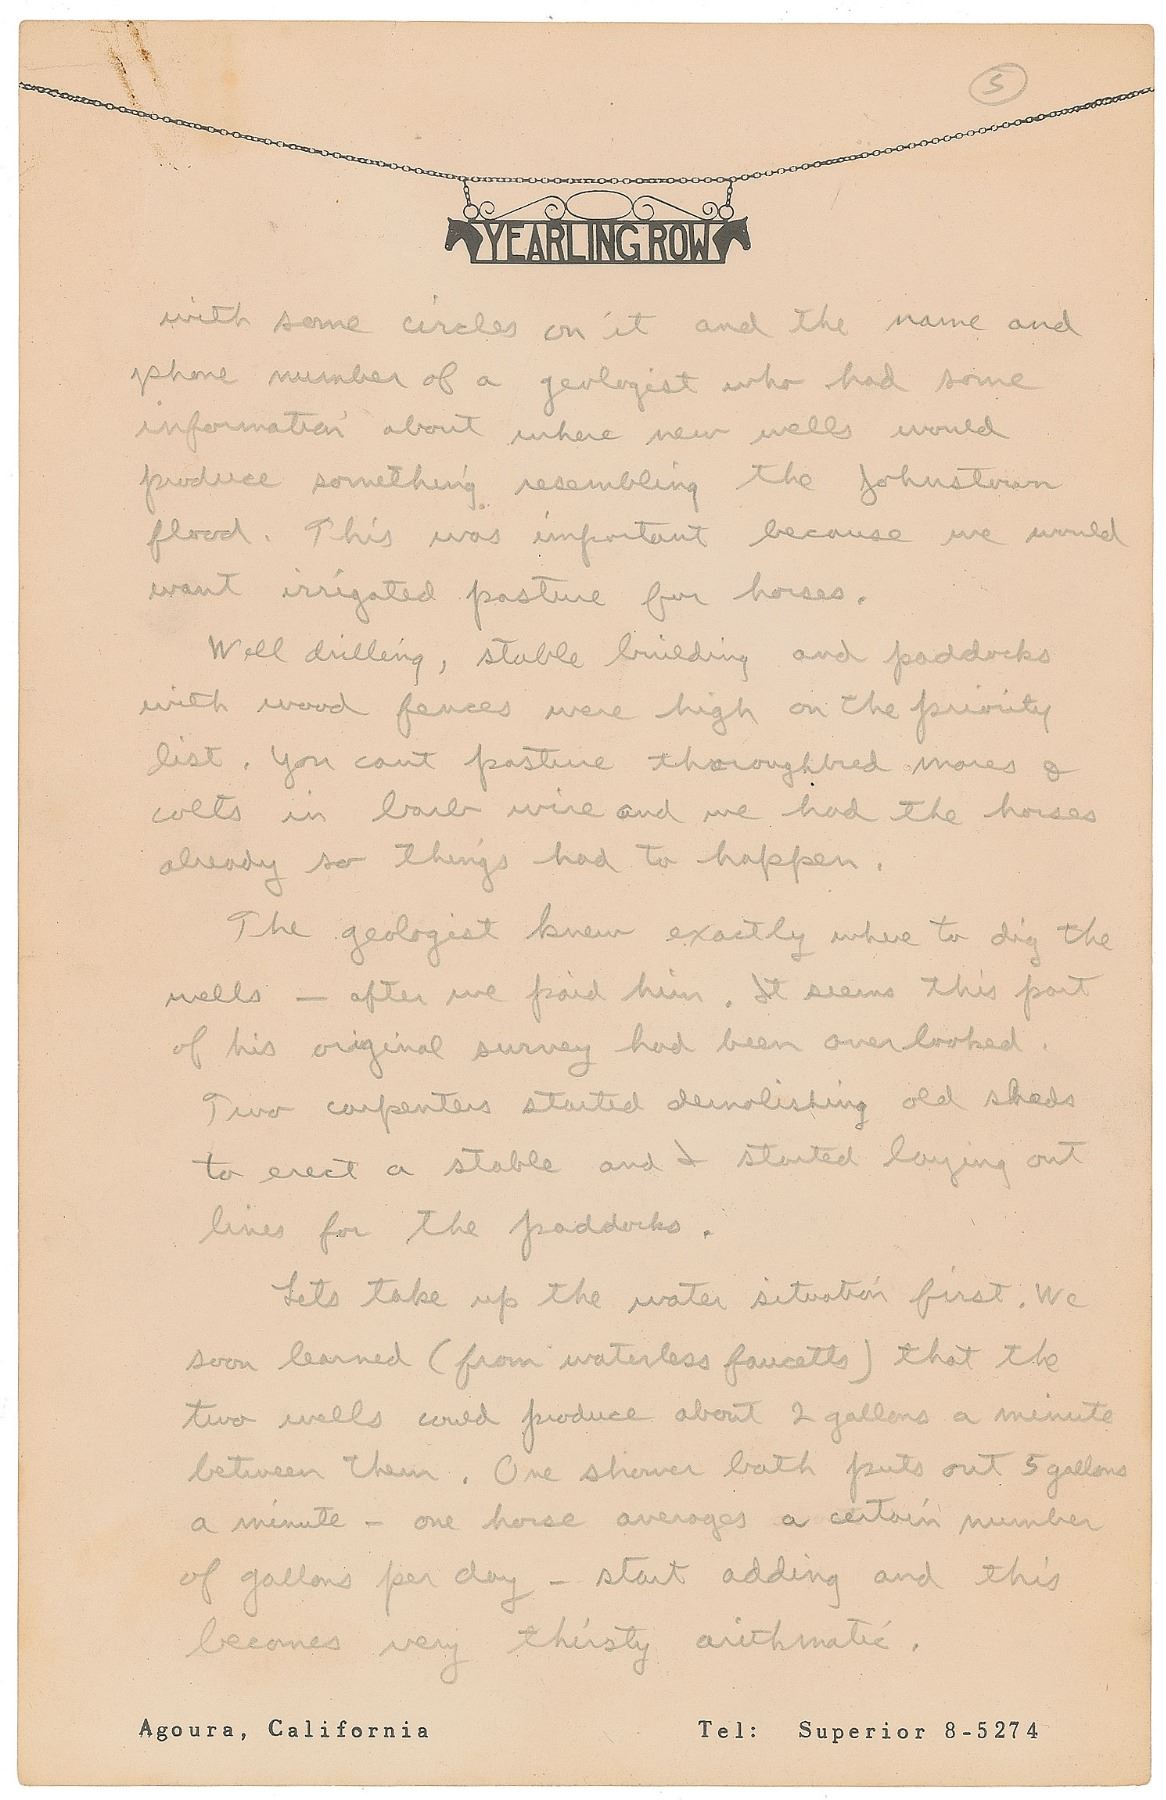 5
YEARLING ROW
with some circles on it and the name and
phone number of a geologist who had some
information about where new wells would
produce something resembling the Johnstown
flood. This was important because we would
want irrigated pasture for horses.
Well drilling, stable building and paddocks
with wood fences were high on the priority
list. You cant pasture thoroughbred mares &
colts in barb wire and we had the horses
already so things had to happen.
The geologist knew exactly where to dig the
wells — after we paid him. It seems this part
of his original survey had been overlooked.
Two carpenters started demolishing old sheds
to erect a stable and I started laying out
lines for the paddocks.
Lets take up the water situation first. We
soon learned (from waterless faucetts) that the
two wells could produce about 2 gallons a minute
between them. One shower bath puts out 5 gallons
a minute – one horse averages a certain number
of gallons per day – start adding and this
becomes very thirsty arithmatic.
Agoura, California Tel: Superior 8-5274